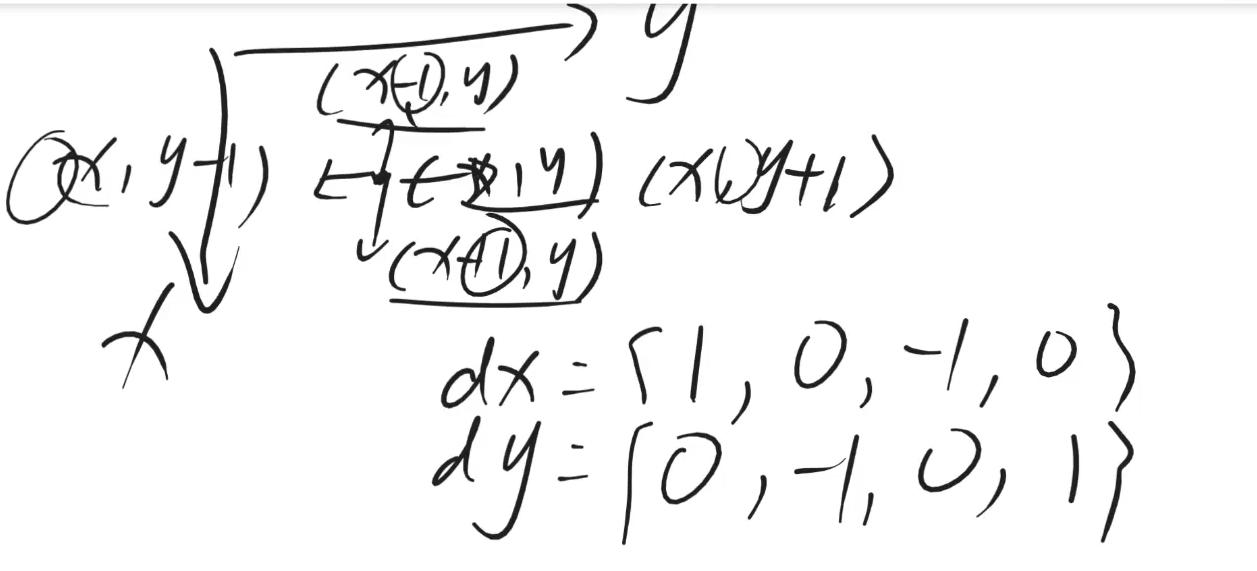 y
(x-1, y)
(x, y-1) (x, y) (x, y+1)
(x+1, y)
x
dx = {1, 0, -1, 0}
dy = {0, -1, 0, 1}